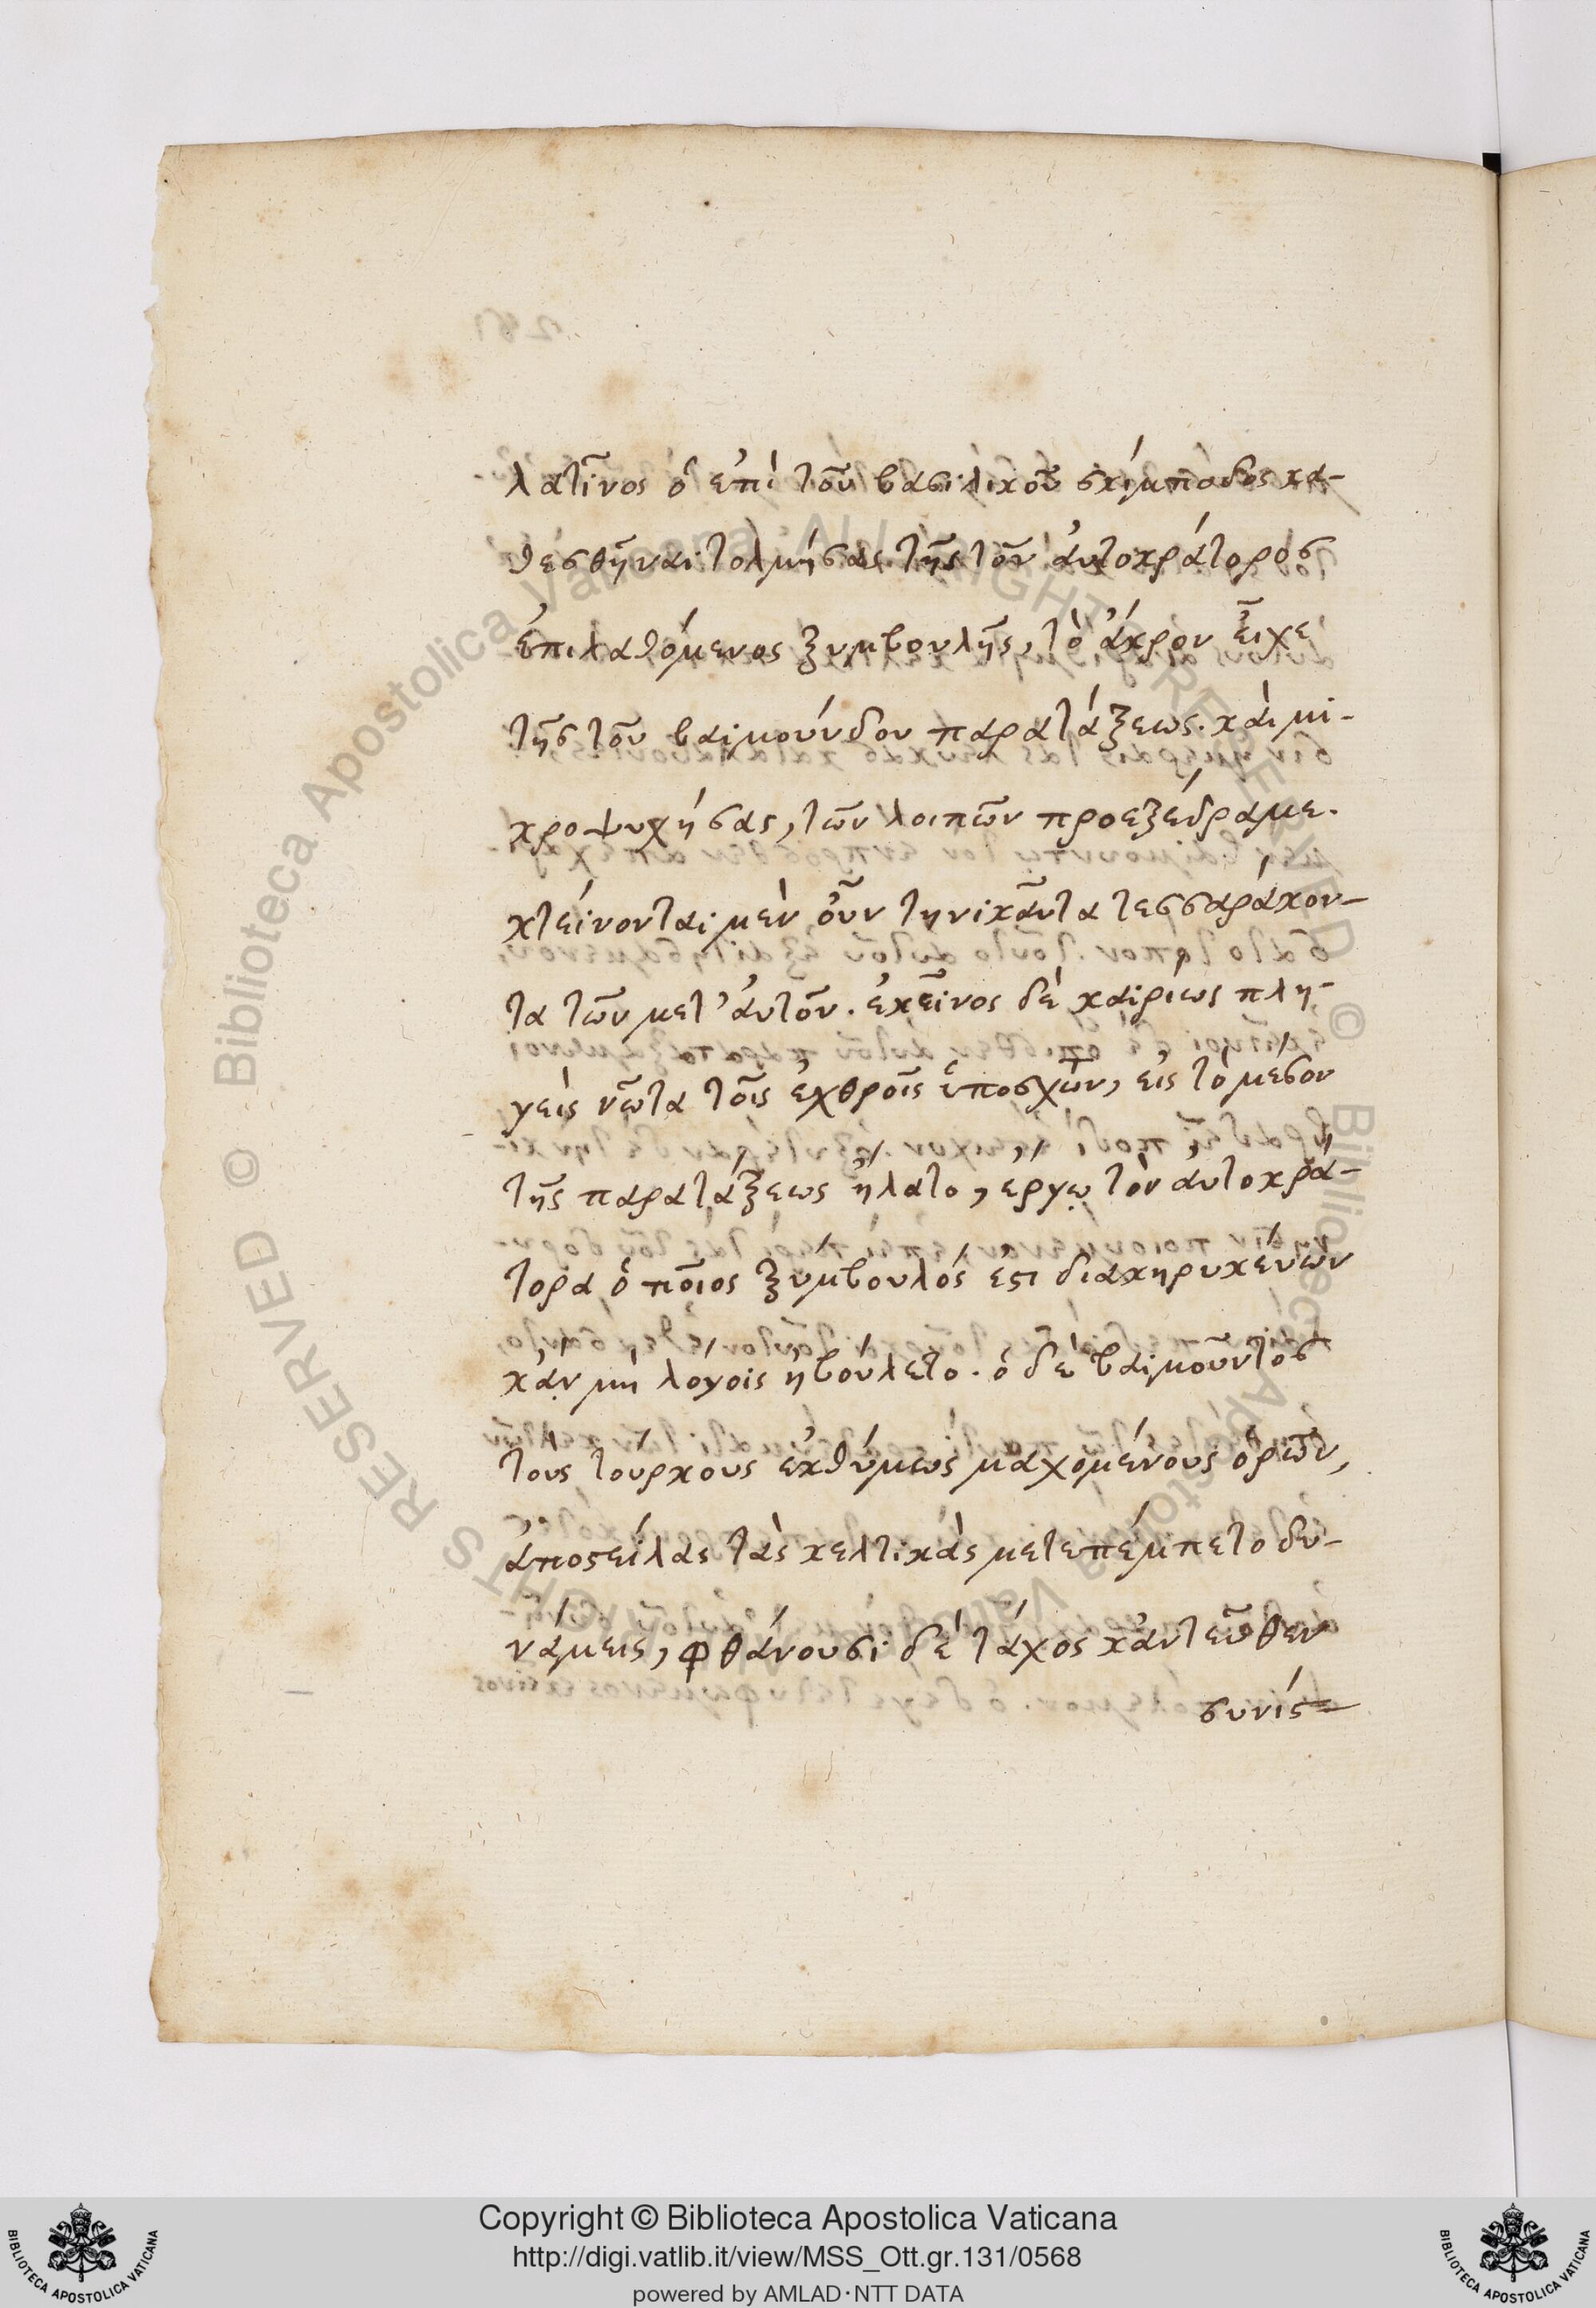 λατῖνος ὁ ἐπὶ τοῦ βασιλικοῦ σκίμποδος κα-
θεσθῆναι τολμήσας τῆς τοῦ ἀυτοκράτορος
ἐπιλαθόμενος ξυμβουλῆς, τὸ ἄκρον εἶχε
τῆς τοῦ βαϊμούνδου παρατάξεως. κὰι μι-
κροψυχήσας, τῶν λοιπῶν προεξέδραμε.
κτείνονται μὲν οὖν τηνικᾶυτα τεσσαράκον-
τα τῶν μετ' ἀυτοῦ. ἐκεῖνος δὲ καιρίως πλη-
γεὶς νῶτα τοῖς ἐχθροῖς ὑποσχῶν, εἰς τὸ μέσον
τῆς παρατάξεως ἤλατο, ἔργῳ τὸν ἀυτοκρά-
τορα ὁ ποῖος ξύμβουλός ἐστι διακηρυκέυων
κἂν μὴ λόγοις ἠβούλετο. ὁ δὲ βαϊμοῦντος
τοὺς τούρκους ἐκθύμως μαχομένους ὁρῶν,
ἀποστείλας τὰς κελτικὰς μετεπέμπετο δυ-
νάμεις, φθάνουσι δὲ τάχος κἀντεῦθεν
συνίσ-
Copyright © Biblioteca Apostolica Vaticana
http://digi.vatlib.it/view/MSS_Ott.gr.131/0568
powered by AMLAD·NTT DATA